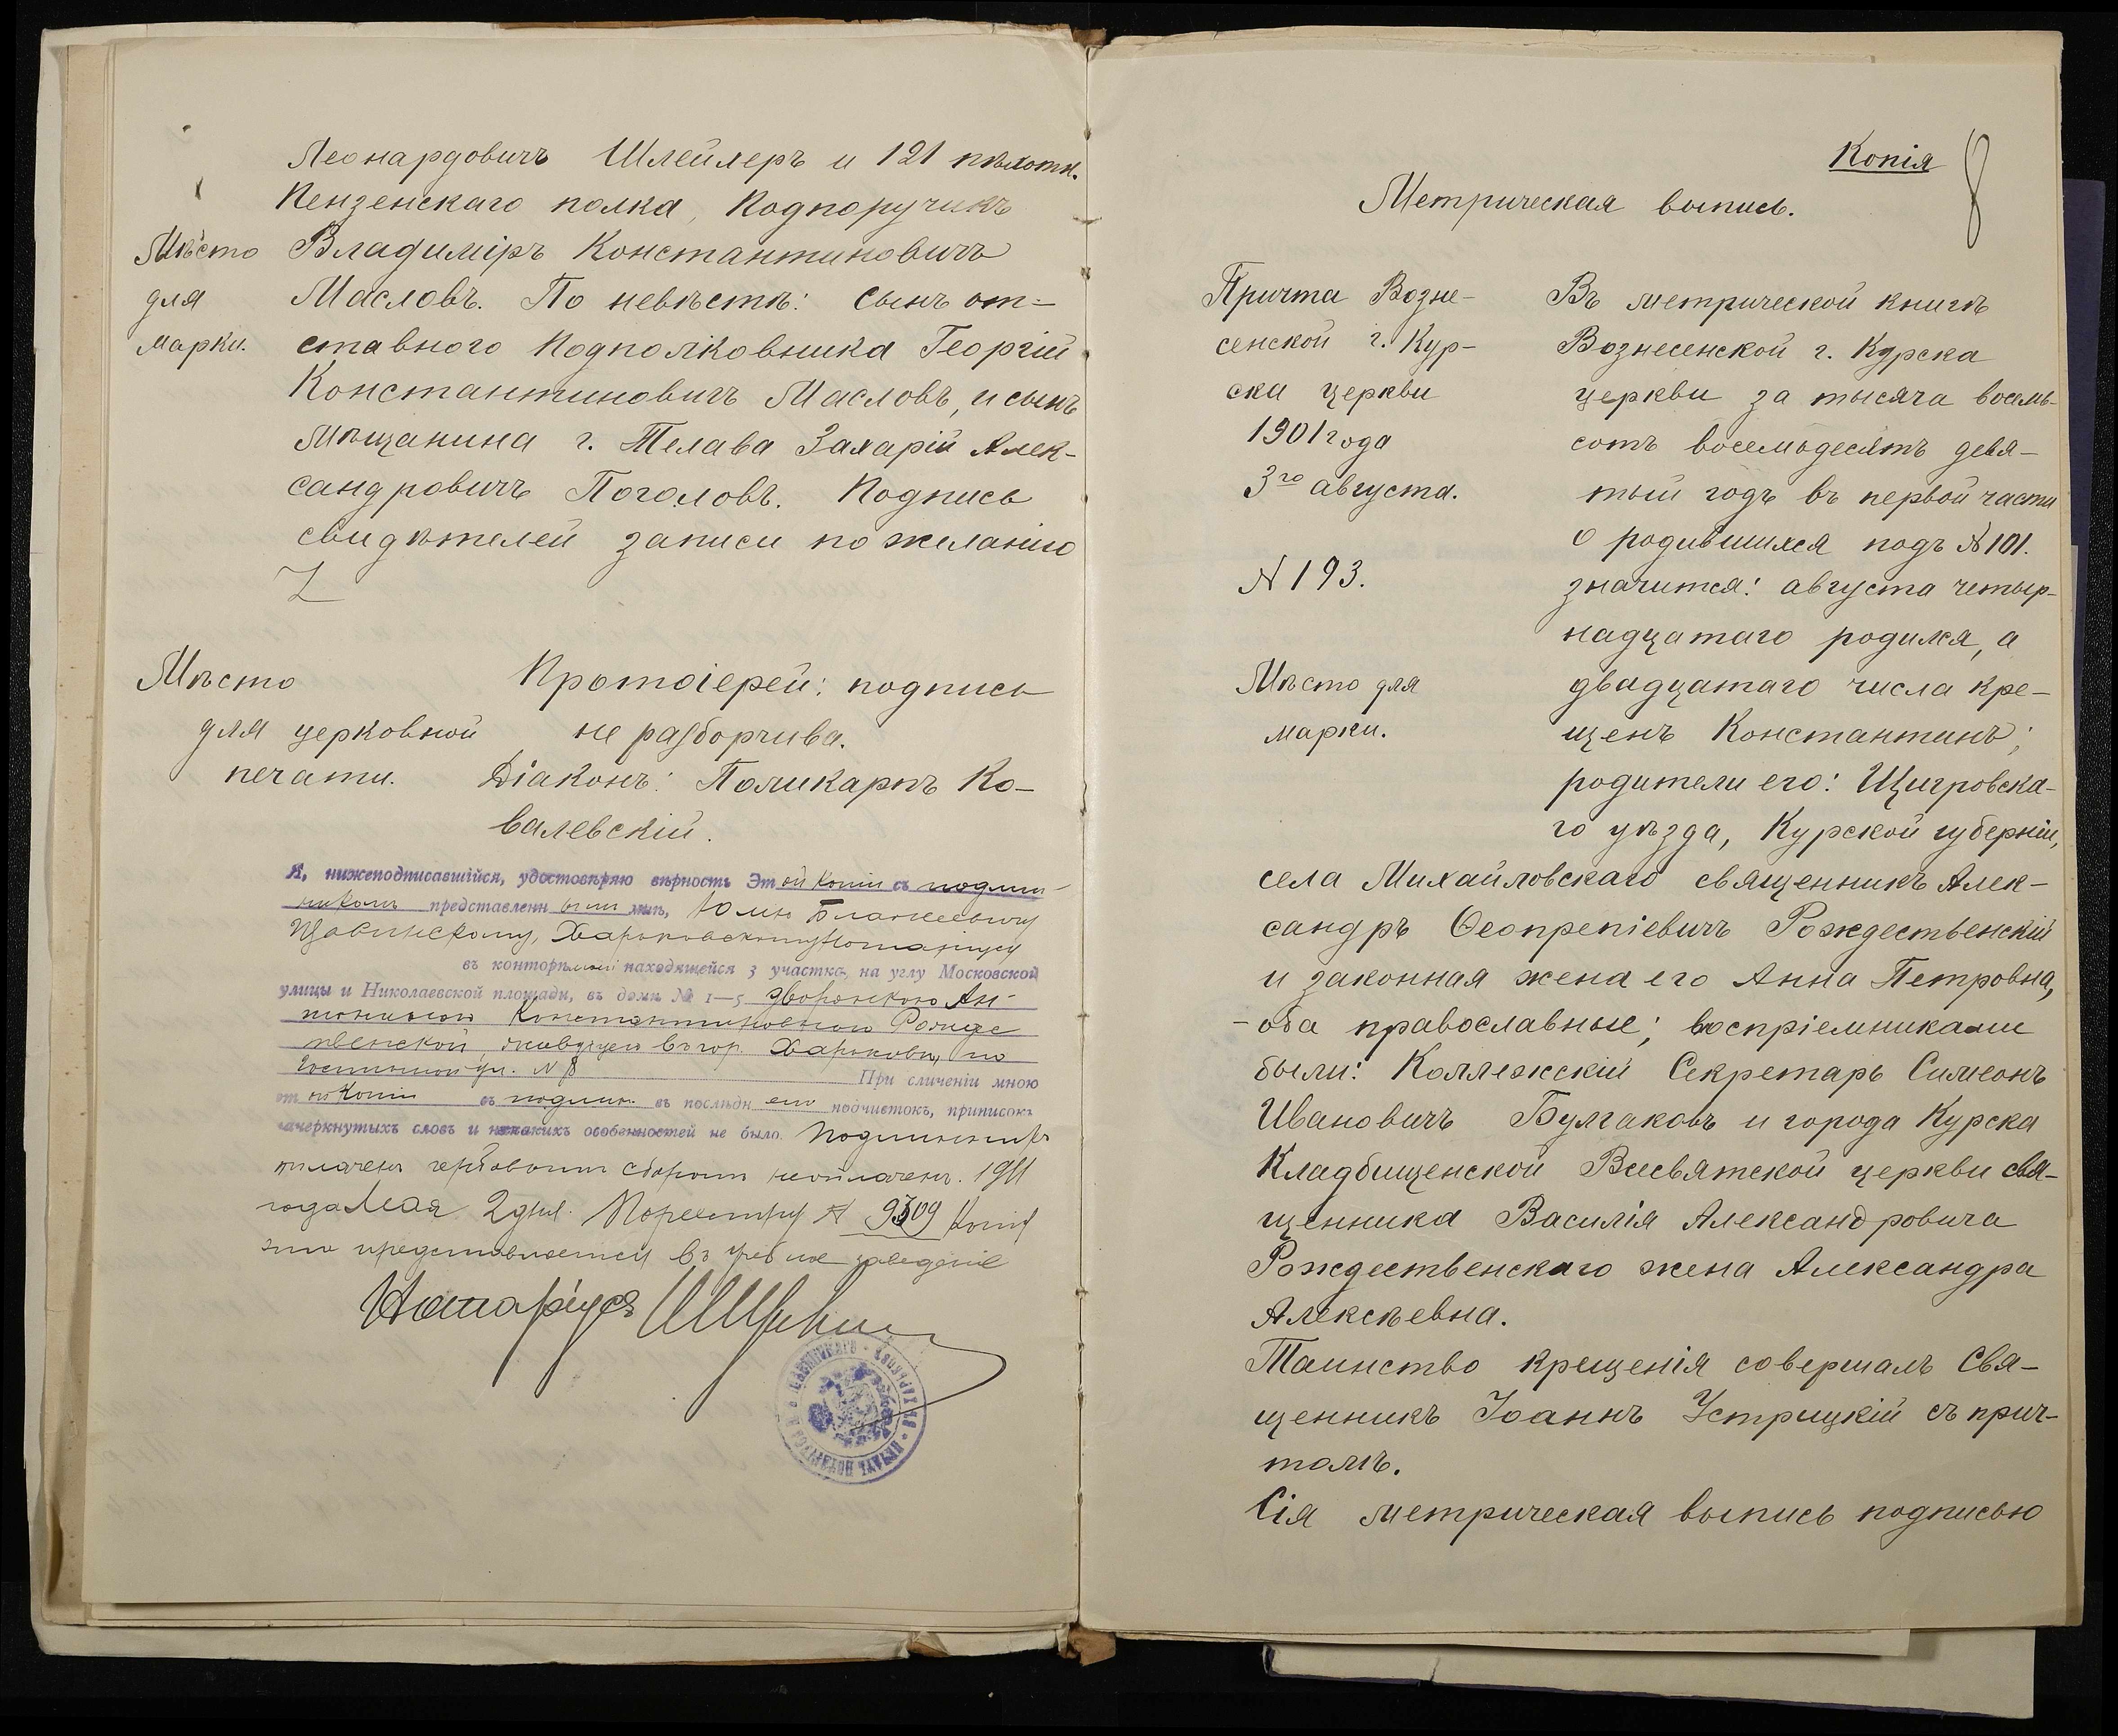 Леонардовичъ Шлейлеръ и 121 пѣхотн.
Пензенскаго полка, Подпоручикъ
Мѣсто Владиміръ Константиновичъ
для Масловъ. По невѣстѣ: сынъ от=
марки. ставного Подполковника Георгій
Константиновичъ Масловъ, и сынъ
мѣщанина г. Телава Захарій Алек-
сандровичъ Поголовъ. Подпись
свидѣтелей записи по желанію
Мѣсто Протоіерей: подпись
для церковной не разборчива.
печати. Діаконъ: Поликарпъ Ко-
валевскій.
Я, нижеподписавшійся, удостовѣряю вѣрность этой копіи съ подлин-
никомъ представленнымъ мнѣ, Юлію Блажеевичу
Щавинскому, Харьковскому Нотаріусу
въ конторѣ моей находящейся 3 участка, на углу Московской
улицы и Николаевской площади, въ домѣ № 1—5 дворянкою Ан-
тониною Константиновною Рожде
ственской, живущей въ гор. Харьковѣ, по
ул. № 8 При сличеніи мною
копіи съ подлин. въ послѣдн емъ подчистокъ, приписокъ
зачеркнутыхъ словъ и никакихъ особенностей не было. Подлинникъ
гербовымъ сборомъ неоплаченъ. 1911
года Мая 2 дня. По реестру № 9309 Копія
эта представляется въ учебное заведеніе
Нотаріусъ
Копія
8
Метрическая выпись.
Причта Возне-
сенской г. Кур-
ска церкви
1901 года
3го августа.
№ 193.
Мѣсто для
марки.
Въ метрической книгѣ
Вознесенской г. Курска
церкви за тысяча восемь-
сотъ восемьдесятъ девя-
тый годъ въ первой части
о родившихся подъ № 101.
значится: августа четыр-
надцатаго родился, а
двадцатаго числа кре-
щенъ Константинъ;
родители его: Щигровска-
го уѣзда, Курской губерніи,
села Михайловскаго священникъ Алек-
сандръ Ѳеопрепіевичъ Рождественскій
и законная жена его Анна Петровна,
-оба православные; воспріемниками
были: Коллежскій Секретарь Симеонъ
Ивановичъ Булгаковъ и города Курска
Кладбищенской Всесвятской церкви свя-
щенника Василія Александровича
Рождественскаго жена Александра
Алексѣевна.
Таинство крещенія совершалъ Свя-
щенникъ Іоаннъ Устрицкій съ прич-
томъ.
Сія метрическая выпись подписью